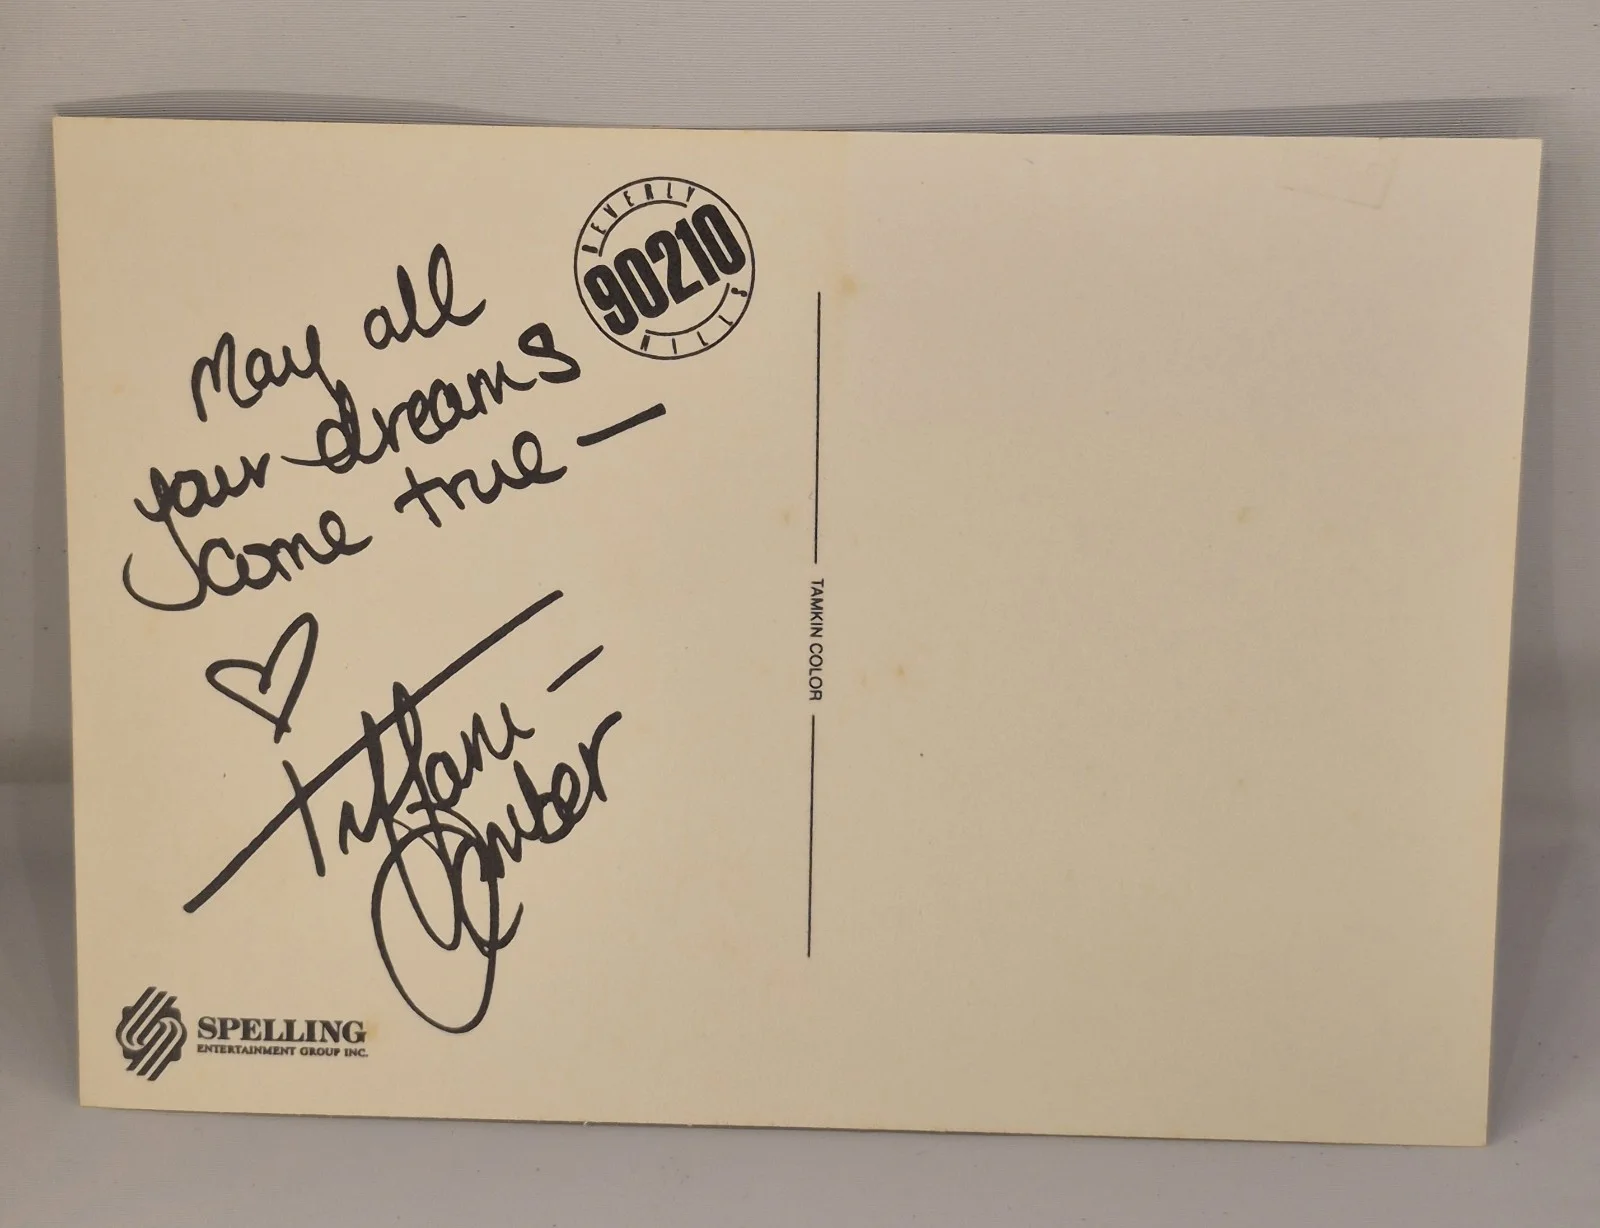 BEVERLY
90210
HILLS
May all
your dreams
come true —
♡
Tiffani -
Amber
TAMKIN COLOR
SPELLING
ENTERTAINMENT GROUP INC.